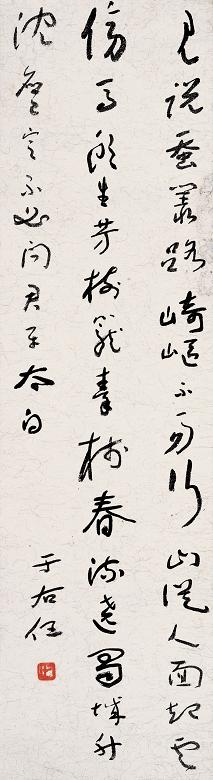 見說蠶叢路崎嶇不易行山從人面起雲
傍馬頭生芳樹籠秦棧春流遶蜀城升
沈應定不必問君平太白
于右任